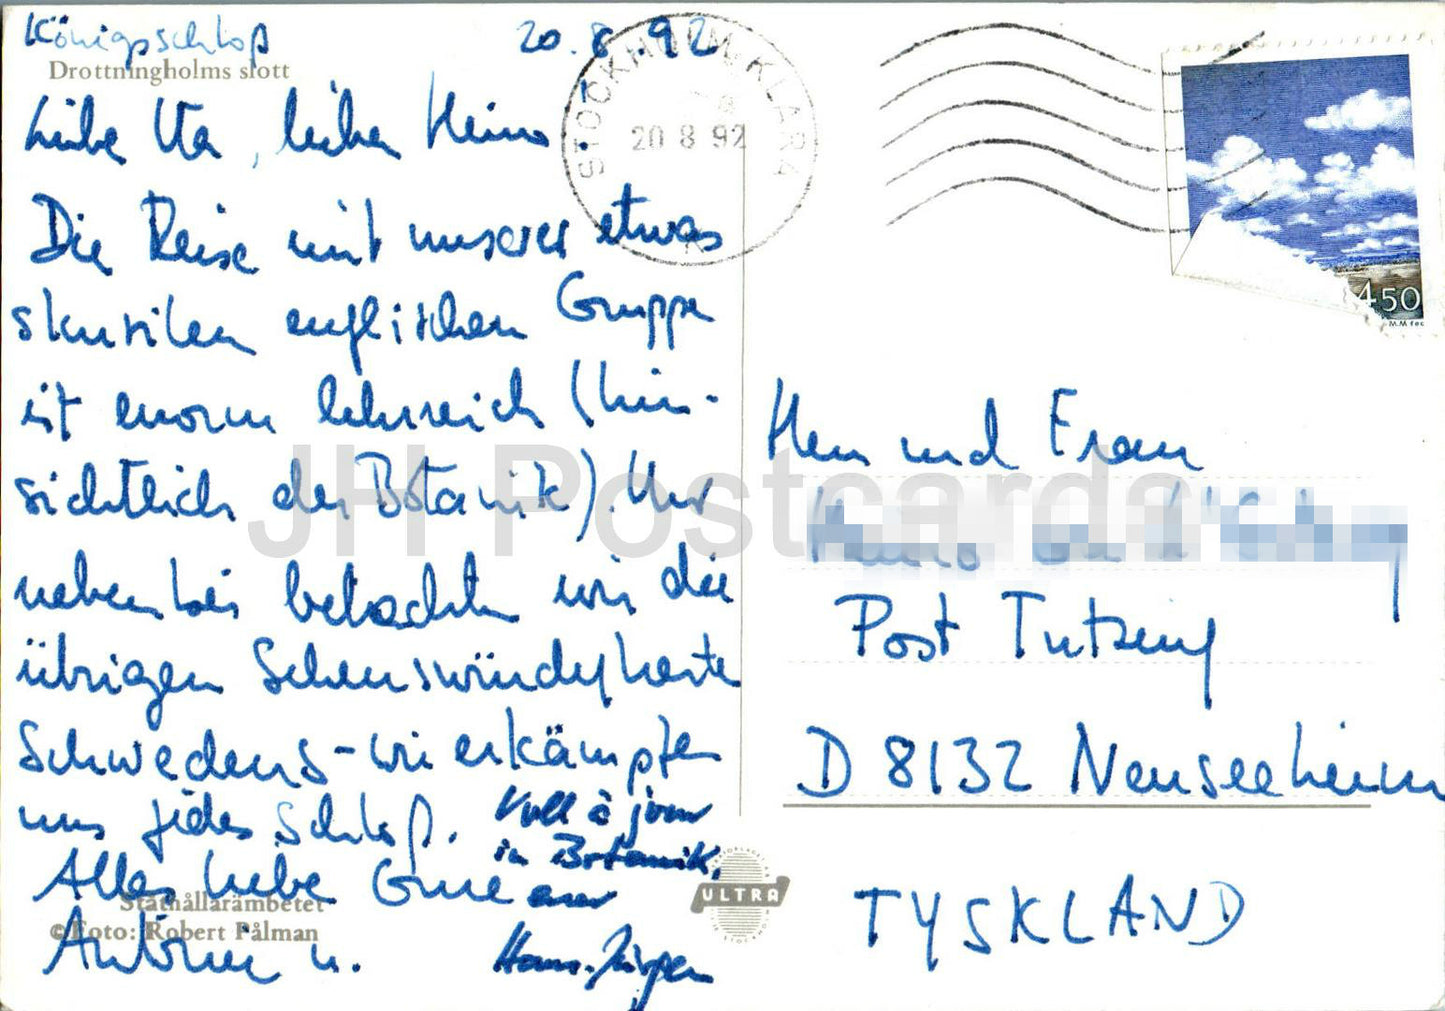 Königsschloß
20.8.92
Drottningholms slott
Liebe Uta, lieber Heino
Die Reise mit unserer etwas
skurilen englischen Gruppe
ist enorm lehrreich (hin-
sichtlich der Botanik). Nur
nebenbei betrachten wir die
übrigen Sehenswürdigkeiten
Schwedens - wir erkämpfen
uns jedes Schloß.
Alles Liebe Grüße
Voll à jour
in Botanik,
euer
Hans-Jürgen
Stathållarämbetet
©Foto: Robert Pålman
ULTRA
STOCKHOLM KLARA
20 8 92
4 50
M.M fec
Herrn und Frau
Post Tutzing
D 8132 Neuseeheim
TYSKLAND
JH Postcards